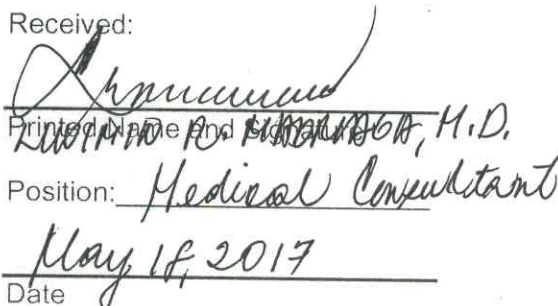 Received:
Printed Name and Signature
R. M.D.
Position: Medical Consultant
May 18, 2017
Date